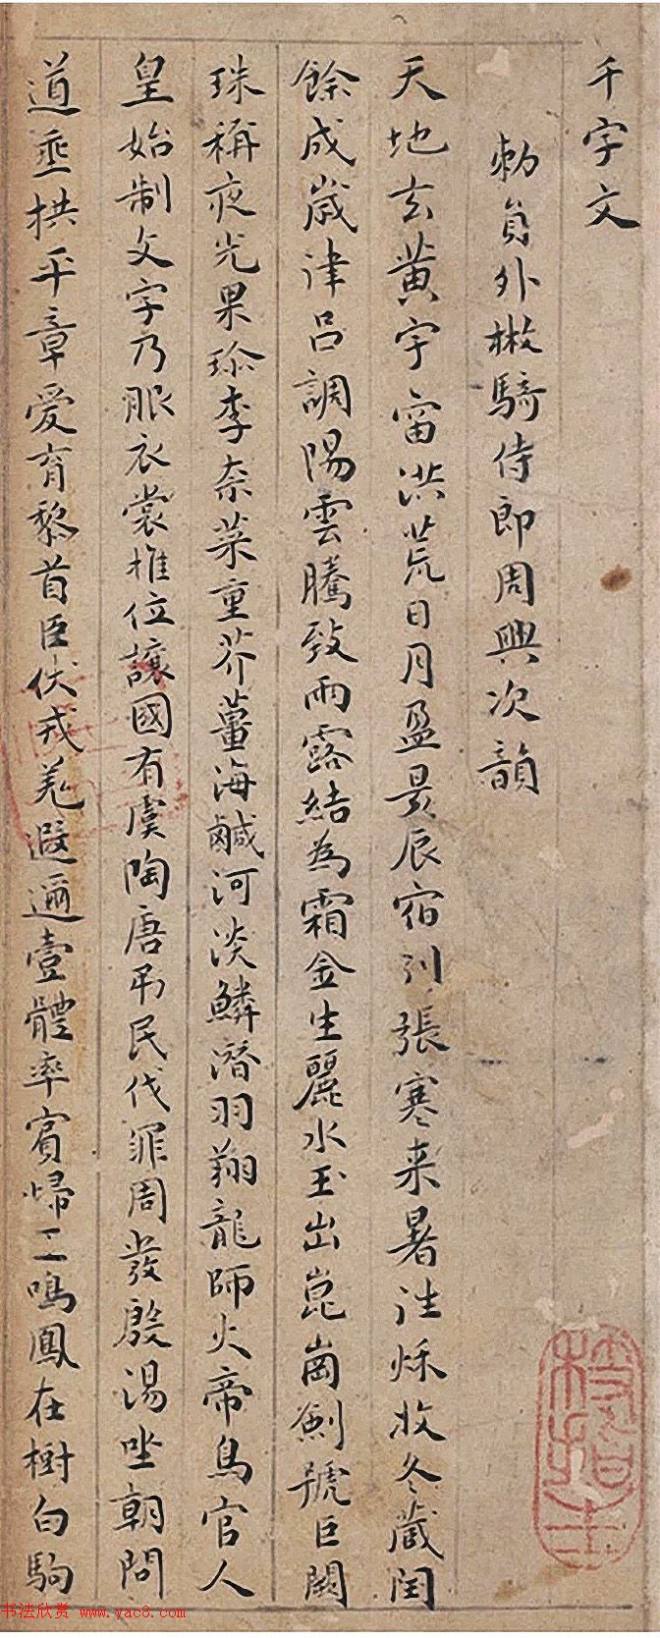 千字文
勑員外散騎侍郎周興次韻
天地玄黃宇宙洪荒日月盈昃辰宿列張寒来暑往秋收冬藏閏
餘成歲律呂調陽雲騰致雨露結為霜金生麗水玉出崑崗劍號巨闕
珠稱夜光果珎李奈菜重芥薑海鹹河淡鱗潛羽翔龍師火帝鳥官人
皇始制文字乃服衣裳推位讓國有虞陶唐弔民伐罪周發殷湯坐朝問
道垂拱平章愛育黎首臣伏戎羌遐邇壹體率賓歸王鳴鳳在樹白駒
书法欣赏 www.yac8.com